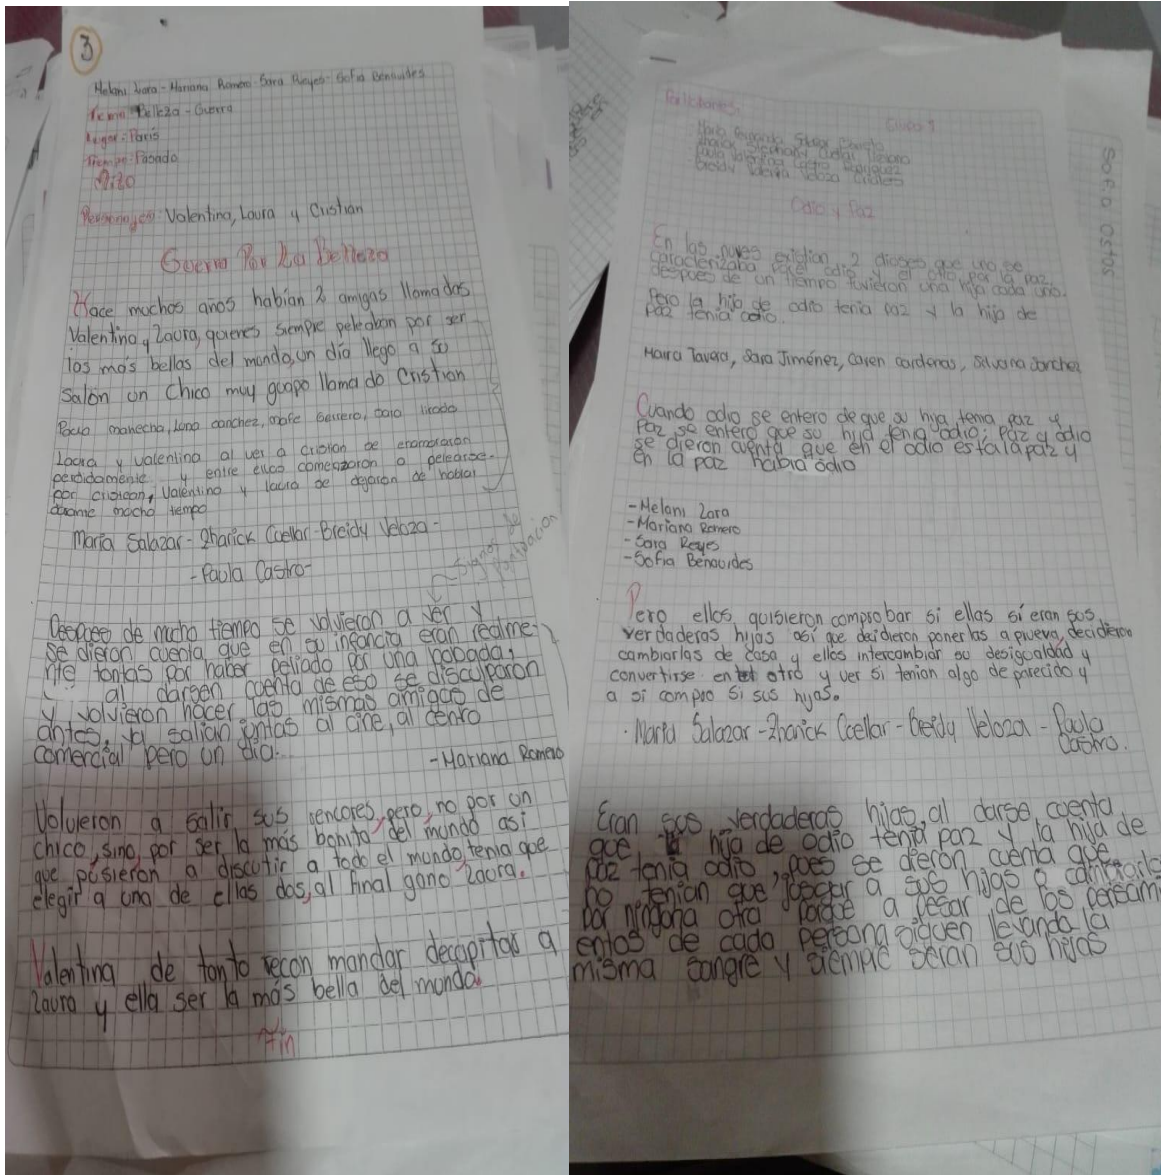 3
Melani Lara - Mariana Romero - Sara Reyes - Sofia Benavides
Tema: Belleza - Guerra
Lugar: Paris
Tiempo: Pasado
Mito
Personajes: Valentina, Laura y Cristian
Guerra Por La Belleza
Hace muchos anos habian 2 amigas llamadas
Valentina y Laura, quienes siempre peleaban por ser
las más bellas del mundo, un día llego a su
Salón un Chico muy guapo llamado Cristian
Laura y valentina al ver a cristian se enamoraron
perdidamente y entre ellas comenzaron a pelearse
por cristian, Valentina y laura se dejaron de hablar
durante mucho tiempo
Maria Salazar - Zharick Cuellar - Breidy Veloza -
- Paula Castro -
Signos de
puntuacion
Despues de mucho tiempo se volvieron a ver y
se dieron cuenta que en su infancia eran realme-
nte tontas por haber peliado por una bobada,
al darsen cuenta de eso se disculparon
y volvieron hacer las mismas amigas de
antes, ya salian juntas al cine, al centro
comercial pero un dia...
- Mariana Romero
Volvieron a salir sus rencores, pero, no por un
chico, sino, por ser la más bonita, del mundo asi
que pusieron a discutir a todo el mundo, tenia que
elegir a una de ellas dos, al final gano Laura.
Valentina de tanto recon mandar decapitar a
Laura y ella ser la más bella del mundo.
Fin
Participantes.
Grupo 1
Maria Fernanda Salazar
Zharick Cuellar
Paula Valentina Castro Rodriguez
Breidy Valeria Veloza
Sofia Ostos
Odio y Paz
En las nuves existian 2 dioses que uno se
caracterizaba por el odio y el otro por la paz.
despues de un tiempo tuvieron una hija cada uno.
Pero la hija de odio tenia paz y la hija de
paz tenia odio.
Maira Tavera, Sara Jiménez, Caren cardenas, Silvana Sanchez
Cuando odio se entero de que su hija tenia paz y
Paz se entero que su hija tenia odio; paz y odio
se dieron cuenta que en el odio esta la paz y
en la paz habia odio
- Melani Lara
- Mariana Romero
- Sara Reyes
- Sofia Benavides
Pero ellos quisieron comprobar si ellas sí eran sus
verdaderas hijas así que decidieron ponerlas a prueva, decidieron
cambiarlas de casa y ellos intercambiar su desigualdad y
convertirse en otro y ver si tenian algo de parecido y
a si compro si sus hijas.
- Maria Salazar - Zharick Cuellar - Breidy Veloza - Paula
Castro.
Eran sus verdaderas hijas, al darse cuenta
que la hija de odio tenia paz y la hija de
paz tenia odio, pues se dieron cuenta que
no tenian que juzgar a sus hijas o cambiarlas
por ninguna otra porque a pesar de los pensami
entos de cada persona siguen llevando la
misma sangre y siempre seran sus hijas